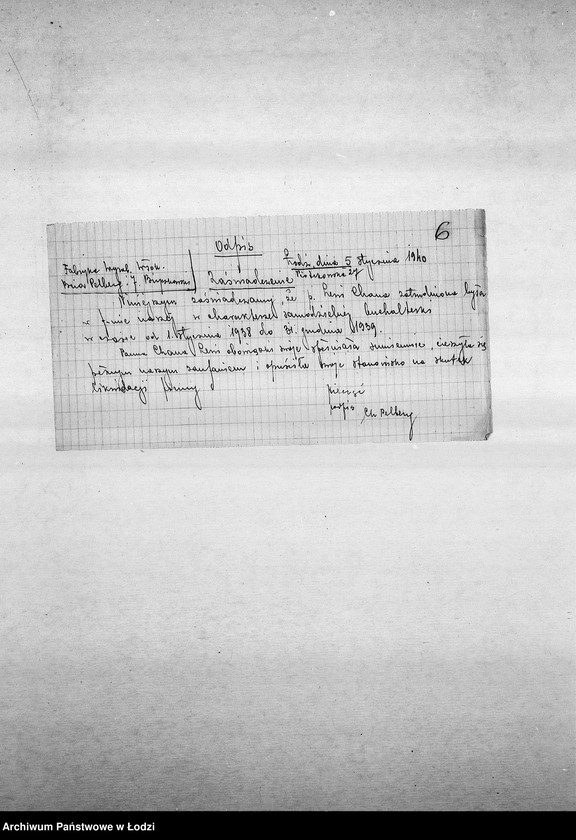 6
Odpis
Łódź, dnia 5 stycznia 1940
Piotrkowska 27
Fabryka wyrob. Włók.
Pelberg, J.
Zaświadczenie
Niniejszym zaświadczamy, że p. Reni Chana zatrudniona była
w firmie naszej w charakterze samodzielnej buchalterki
w czasie od 1 stycznia 1938 do 31 grudnia 1939.
Panna Chana Reni obowiązki swoje spełniała sumiennie, cieszyła się
pełnym naszym zaufaniem i opuściła swoje stanowisko na skutek
likwidacji firmy
pieczęć
podpis Ch Pelberg
Archiwum Państwowe w Łodzi